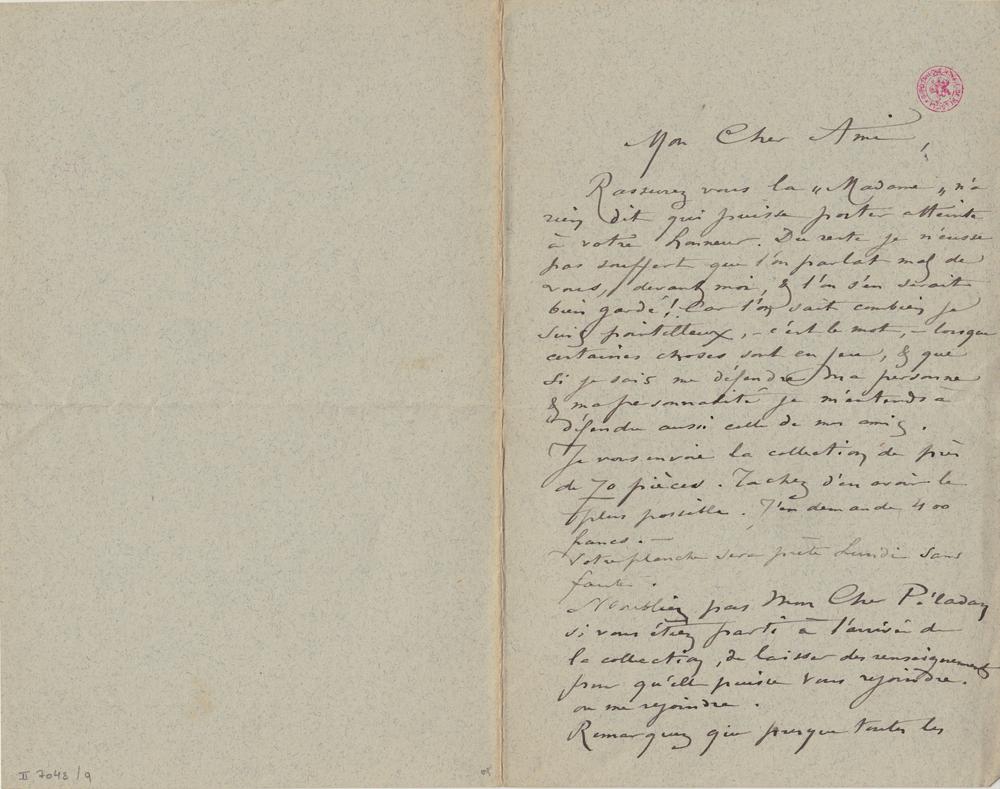 Mon Cher Ami,
Rassurez vous la „Madame„ n'a
rien dit qui puisse porter atteinte
à votre honneur. Du reste je n'eusse
pas souffert que l'on parlat mal de
vous, devant moi, & l'on s'en serait
bien gardé! Car l'on sait combien je
suis pointilleux, – c'est le mot, – lorsque
certaines choses sont en jeu, & que
si je sais me défendre ma personne
& ma personnalité je m'entends à
défendre aussi celle de mes amis.
Je vous envoie la collection de près
de 70 pièces. Tachez d'en avoir le
plus possible. J'en demande 400
francs. —
Votre planche sera prête Lundi sans
faute.
N'oubliez pas Mon Cher Péladan
si vous étiez parti à l'arrivée de
la collection, de laisser des renseignements
pour qu'elle puisse vous rejoindre.
ou me rejoindre.
Remarquez que presque toutes les
II 7043/9